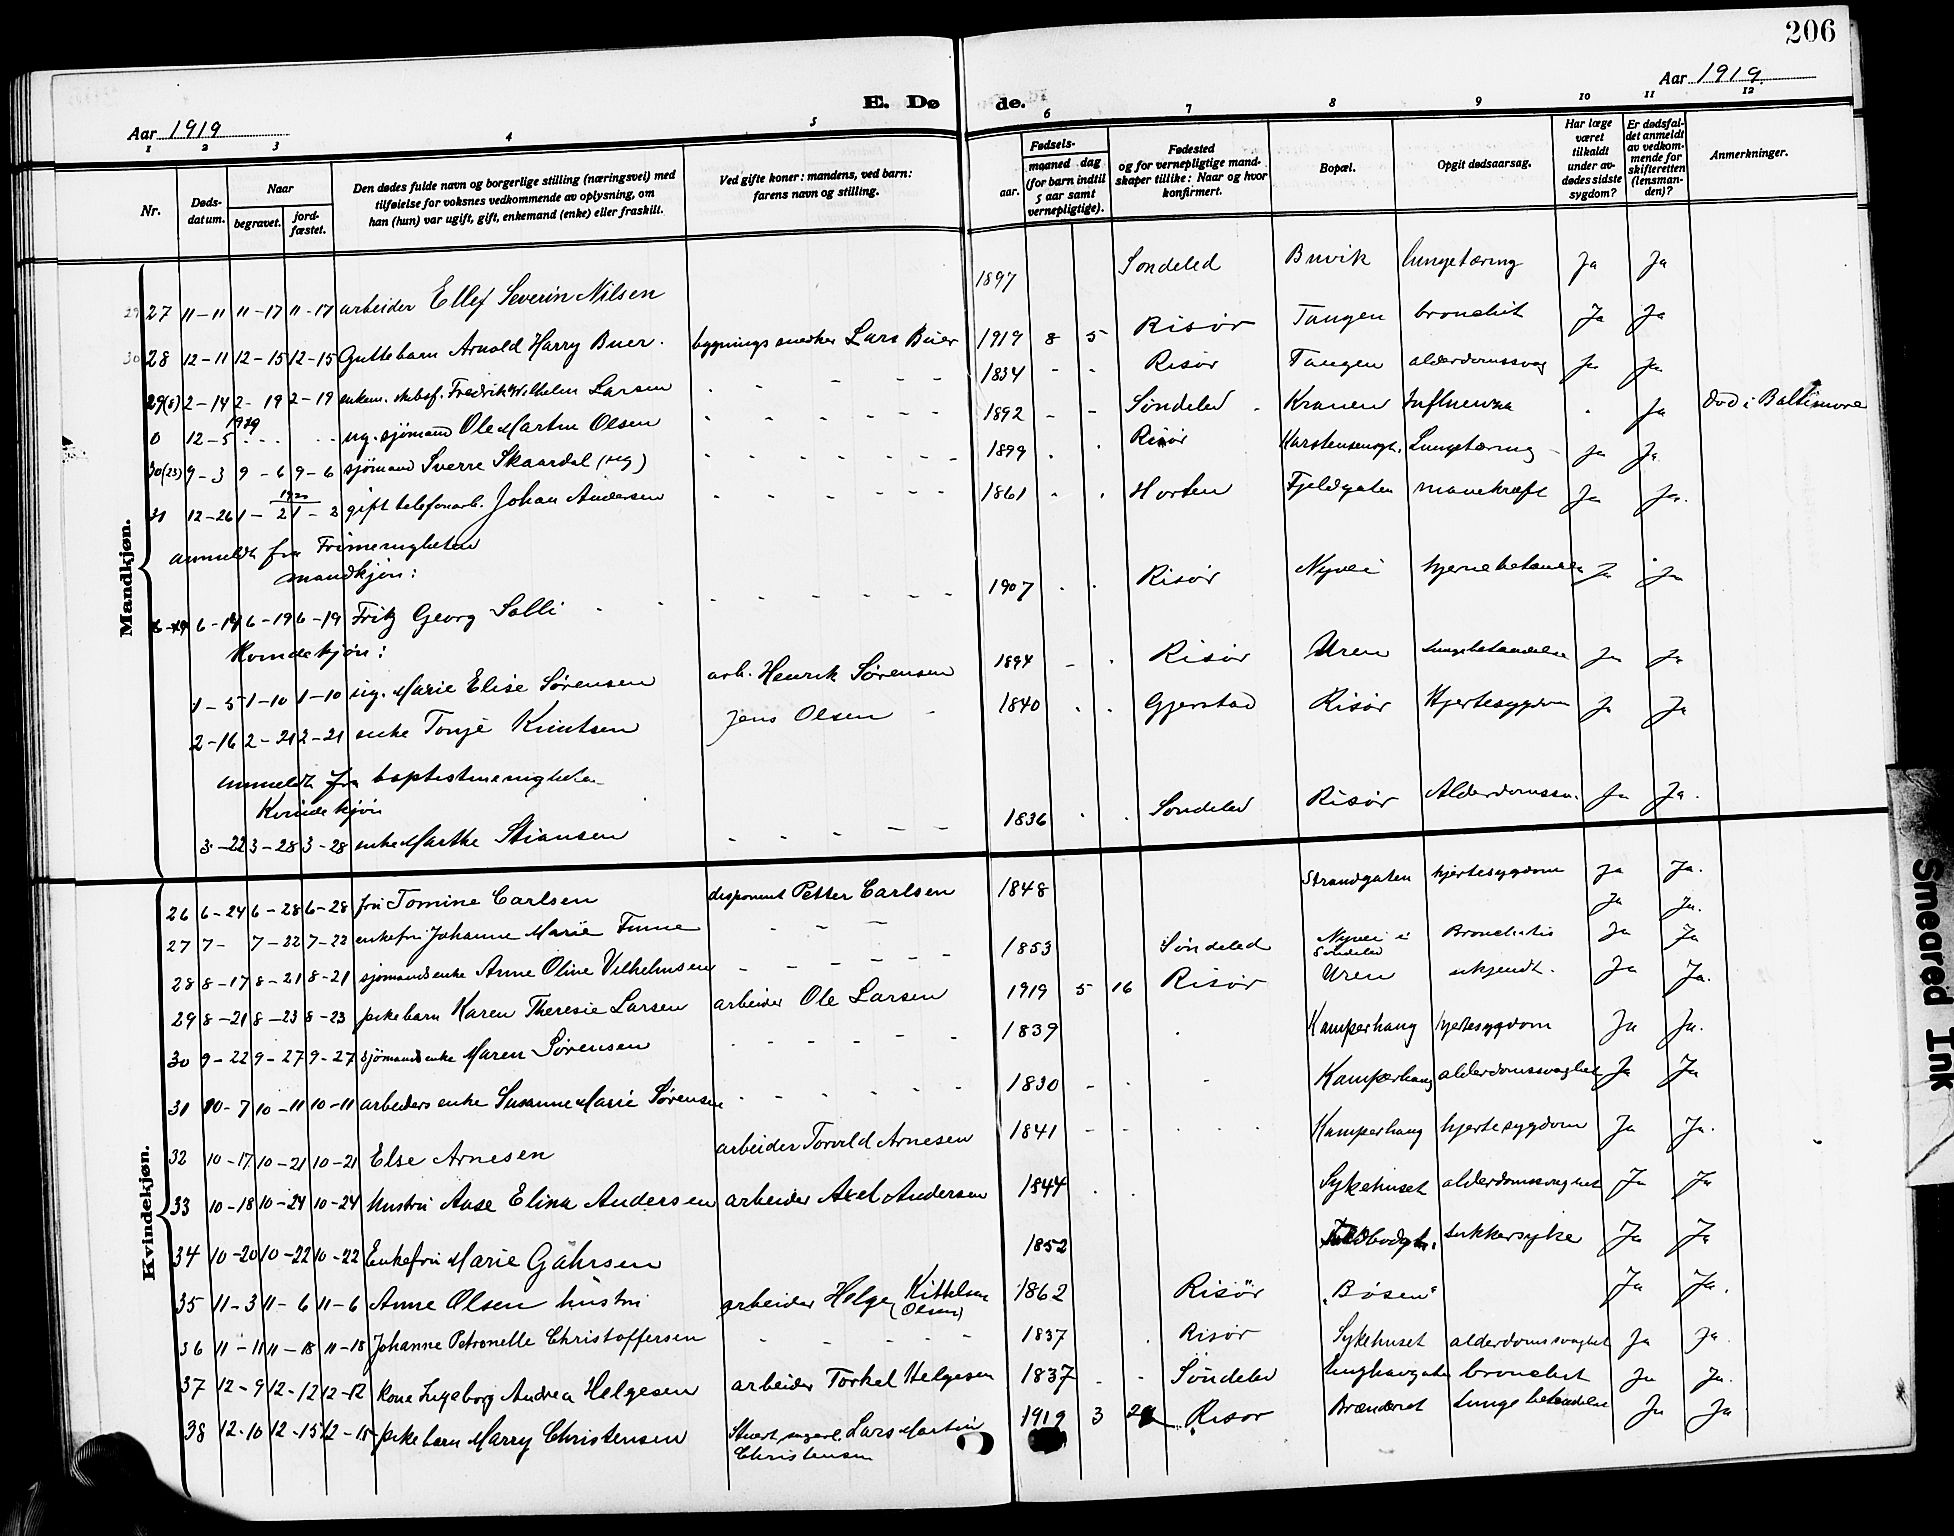 206
Aar 1919 E. Dø de. Aar 1919.
1 2 3 4 5 6 7 8 9 10 11 12
Nr. Døds-datum. Naar begravet. jord-fæstet. Den dødes fulde navn og borgerlige stilling (næringsvei) med tilføielse for voksnes vedkommende av oplysning, om han (hun) var ugift, gift, enkemand (enke) eller fraskilt. Ved gifte koner: mandens, ved barn: farens navn og stilling. Fødsels- aar. maaned dag (for barn indtil 5 aar samt vernepligtige). Fødested og for vernepligtige mand-skaper tillike: Naar og hvor konfirmert. Bopæl. Opgit dødsaarsag. Har læge været tilkaldt under av-dødes sidste sygdom? Er dødsfal-det anmeldt av vedkom-mende for skifteretten (lensman-den)? Anmerkninger.
Mandkjøn.
29 27 11-11 11-17 11-17 arbeider Ellef Severin Nilsen 1897 Søndeled Buvik lungetæring Ja Ja
30 28 12-11 12-15 12-15 Guttebarn Arnold Harry Buer. bygningssnedker Lars Buer 1919 8 5 Risør Tangen bronchit Ja Ja
29(8) 2-14 2-19 2-19 enkem. skibsf. Fredrik Wilhelm Larsen - - - - - 1834 - - Risør Tangen alderdomssvag Ja Ja
0 12-5 1919 - - ug. sjømand Ole Martin Olsen - - - - - - 1892 - - Søndeled - Kranen Influenza - Ja død i Baltimore
30(23) 9-3 9-6 9-6 sjømand Sverre Skaardal (ug) - - - - - - 1899 - - Risør Karstensensgt. Lungetæring - Ja Ja
31 12-26 1920 1-2 1-2 gift telefonarb. Johan Andersen - - - - - - 1861 - - Horten Fjeldgaten mavekræft Ja Ja.
anmeldt fra Frimenigheten
mandkjøn:
6-14 6-19 6-19 Fritz Georg Solli - - - - - - - - 1907 - - Risør Nyvei hjernebetændelse Ja Ja
Kvindekjøn:
1-5 1-10 1-10 ug. Marie Elise Sørensen arb. Henrik Sørensen 1894 - - Risør Uren lungebetændelse Ja Ja
2-16 2-21 2-21 enke Tonje Knutsen Jens Olsen - 1840 - - Gjerstad Risør Hjertesygdom Ja Ja
anmeldt fra baptistmenigheten
Kvindekjøn
3-22 3-28 3-28 enke Marthe Stiansen - - - - - 1836 - - Søndeled Risør Alderdomssv. Ja Ja.
Kvindekjøn.
26 6-24 6-28 6-28 fru Tomine Carlsen disponent Petter Carlsen 1848 Strandgaten hjertesygdom Ja Ja.
27 7- 7-22 7-22 enkefru Johanne Marie Finne - - - Ja Ja.
28 8-17 8-21 8-21 sjømands enke Anne Oline Vilhelmsen - - - - - - 1853 Søndeled Nyvei i Søndeled Bronchitis Ja Ja
29 8-21 8-23 8-23 pikebarn Karen Theresie Larsen arbeider Ole Larsen 1919 5 16 Risør Uren ukjendt. Ja Ja.
30 9-22 9-27 9-27 sjømands enke Maren Sørensen - - - - - - 1839 - Kamperhaug hjertesygdom Ja Ja.
31 10-7 10-11 10-11 arbeiders enke Susanne Marie Sørensen - - - - - - 1830 - - - Kamperhaug alderdomssvaghet Ja Ja
32 10-17 10-21 10-21 Else Arnesen arbeider Torvald Arnesen 1841 - - - - - Kamperhaug hjertesygdom Ja Ja.
33 10-18 10-24 10-24 hustru Aase Elina Andersen arbeider Axel Andersen 1844 - - Sykehuset alderdomssvaghet Ja Ja
34 10-20 10-22 10-22 Enkefru Marie Gährsen 1852 sukkersyke Ja Ja
35 11-3 11-6 11-6 Anne Olsen hustru arbeider Helge Kittelsen (Olsen) 1862 Risør "Bøsen" Ja Ja.
36 11-11 11-18 11-18 Johanne Petronelle Christoffersen - - - - - 1837 - Risør Sykehuset alderdomssvaghet Ja Ja.
37 12-9 12-12 12-12 Kone Ingeborg Andrea Helgesen arbeider Torkel Helgesen 1837 - - Søndeled bronchit Ja Ja.
38 12-10 12-15 12-15 pikebarn Marry Christensen Lars Martin Christensen 1919 3 Risør Brænderiet Lungebetændelse Ja Ja
Smeared Ink